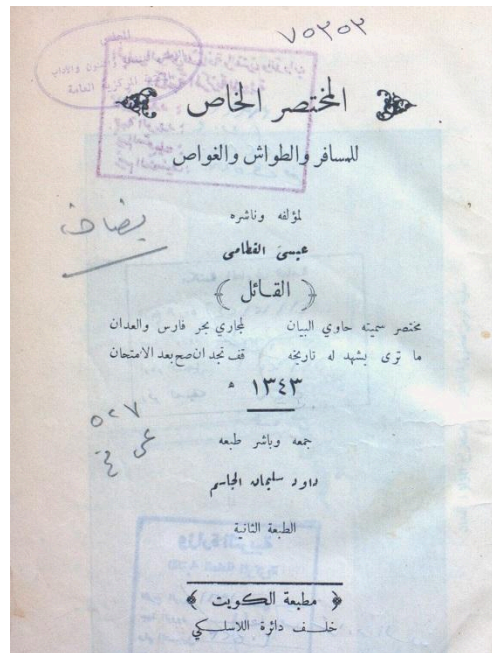 ٧٥٣٥٣
المختصر الخاص
للمسافر والطواش والغواص
لمؤلفه وناشره
عيسى القطامى
﴿ القائل ﴾
مختصر سميته حاوي البيان لمجاري بحر فارس والعدان
ما ترى يشهد له تاريخه قف تجد ان صح بعد الامتحان
١٣٤٣ ھ
يضاف
٥٢٧
جمعه وباشر طبعه
داود سليمان الجاسم
الطبعة الثانية
﴿ مطبعة الكويت ﴾
خلف دائرة اللاسلكي